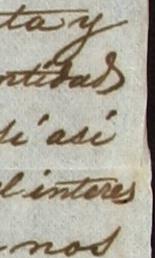 ta y
ntidad
si asi
el interes
nos